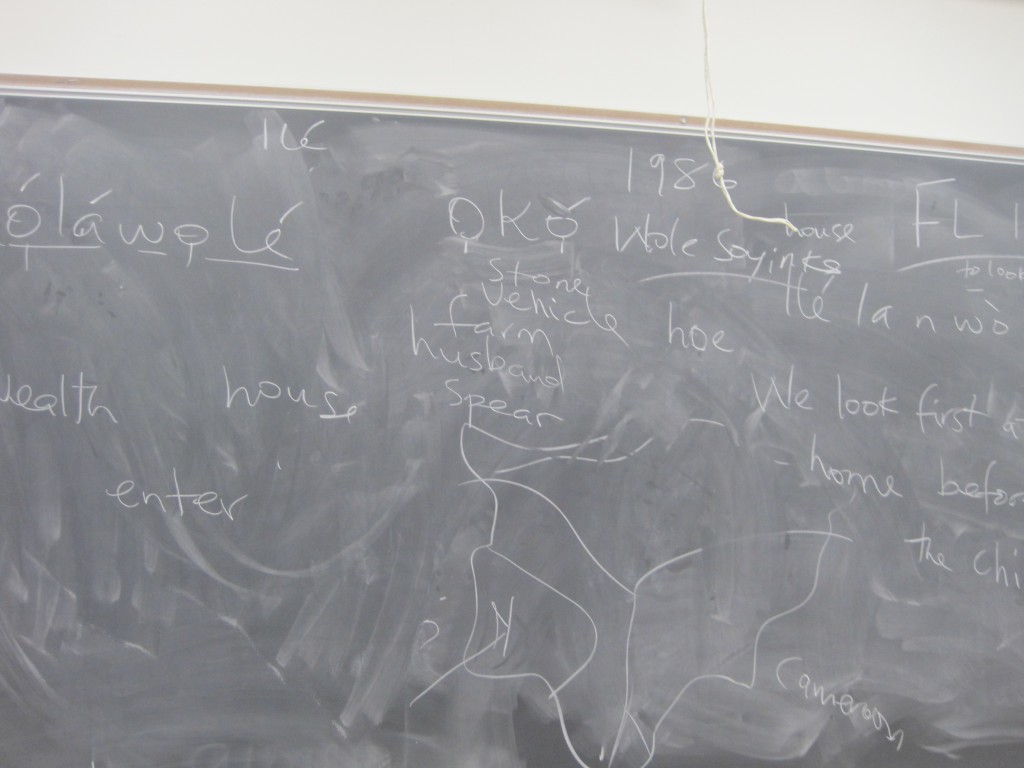 Ilé
ọ́láwọlé
wealth house
enter
ỌKỌ̌
stone
vehicle
farm
husband
spear
hoe
1986
Wole Soyinka
house
FL
to look
Ilé la n wò
We look first
home
the
Cameroon